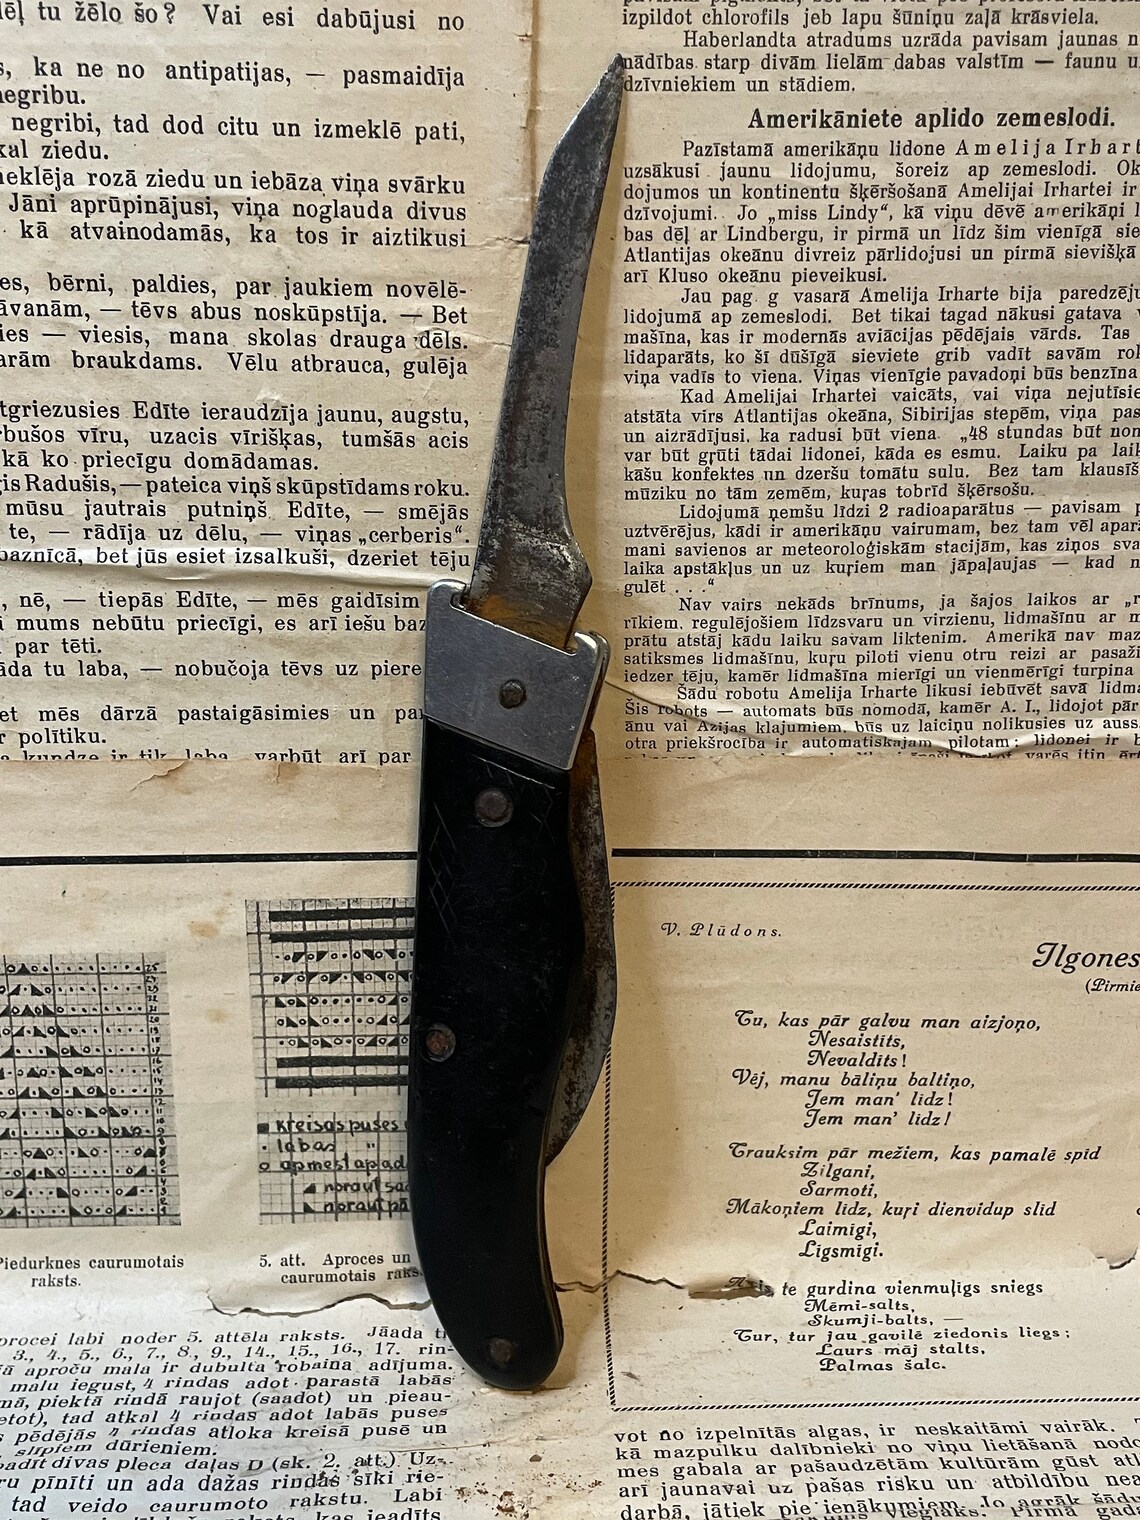 dēļ tu žēlo šo? Vai esi dabūjusi no
ka ne no antipatijas, — pasmaidīja
negribu.
negribi, tad dod citu un izmeklē pati,
ziedu.
meklēja rozā ziedu un iebāza viņa svārku
Jāni aprūpinājusi, viņa noglauda divus
kā atvainodamās, ka tos ir aiztikusi
bērni, paldies, par jaukiem novēlē-
— tēvs abus noskūpstīja. — Bet
— viesis, mana skolas drauga dēls.
braukdams. Vēlu atbrauca, gulēja
Edīte ieraudzīja jaunu, augstu,
vīru, uzacis vīrišķas, tumšās acis
kā ko priecīgu domādamas.
Radušis, — pateica viņš skūpstīdams roku.
mūsu jautrais putniņš Edīte, — smējās
te, — rādīja uz dēlu, — viņas „cerberis“.
baznīcā, bet jūs esiet izsalkuši, dzeriet tēju
nē, — tiepās Edīte, — mēs gaidīsim
mums nebūtu priecīgi, es arī iešu
par tēti.
tu laba, — nobučoja tēvs uz
mēs dārzā pastaigāsimies un
politiku.
kundze ir tik laba, varbūt arī par
izpildot chlorofils jeb lapu šūniņu zaļā krāsviela.
Haberlandta atradums uzrāda pavisam jaunas
nādības starp divām lielām dabas valstīm — faunu
dzīvniekiem un stādiem.
Amerikāniete aplido zemeslodi.
Pazīstamā amerikāņu lidone Amelija Irhart
uzsākusi jaunu lidojumu, šoreiz ap zemeslodi.
dojumos un kontinentu šķēršošanā Amelijai Irhartei ir
dzīvojumi. Jo „miss Lindy“, kā viņu dēvē amerikāņi
bas dēļ ar Lindbergu, ir pirmā un līdz šim vienīgā
Atlantijas okeānu divreiz pārlidojusi un pirmā sievišķā
arī Kluso okeānu pieveikusi.
Jau pag. g vasarā Amelija Irharte bija
lidojumā ap zemeslodi. Bet tikai tagad nākusi gatava
mašīna, kas ir modernās aviācijas pēdējais vārds. Tas
lidaparāts, ko šī dūšīgā sieviete grib vadīt savām
viņa vadīs to viena. Viņas vienīgie pavadoņi būs benzīna
Kad Amelijai Irhartei vaicāts, vai viņa
atstāta virs Atlantijas okeāna, Sibirijas stepēm, viņa
un aizrādījusi, ka radusi būt viena. „48 stundas būt
var būt grūti tādai lidonei, kāda es esmu. Laiku pa
kāšu konfektes un dzeršu tomātu sulu. Bez tam
mūziku no tām zemēm, kuŗas tobrīd šķērsošu.
Lidojumā ņemšu līdzi 2 radioaparātus — pavisam
uztvērējus, kādi ir amerikāņu vairumam, bez tam vēl
mani savienos ar meteoroloģiskām stacijām, kas ziņos
laika apstākļus un uz kuŗiem man jāpaļaujas — kad
gulēt . . .“
Nav vairs nekāds brīnums, ja šajos laikos ar
rīkiem, regulējošiem līdzsvaru un virzienu, lidmašīnu ar
prātu atstāj kādu laiku savam liktenim. Amerikā nav
satiksmes lidmašīnu, kuŗu piloti vienu otru reizi ar
iedzer tēju, kamēr lidmašīna mierīgi un vienmērīgi turpina
Šādu robotu Amelija Irharte likusi iebūvēt savā
Šis robots — automats būs nomodā, kamēr A. I., lidojot
ānu vai Azijas klajumiem, būs uz laiciņu nolikusies uz
otra priekšrocība ir automatiskajam pilotam: lidonei ir
kreisās puses
labās "
apmestapad
noraut
noraut
Piedurknes caurumotais
raksts.
5. att. Aproces un
caurumotais
procei labi noder 5. attēla raksts. Jāada
3., 4., 5., 6., 7., 8., 9., 14., 15., 16., 17. rin-
aproču mala ir dubulta robaina adījuma.
malu iegust, 4 rindas adot parastā labās
piektā rindā raujot (saadot) un pieau-
tad atkal 4 rindas adot labās puses
pēdējās 4 rindas atloka kreisā pusē un
slīpiem dūrieniem.
divas pleca daļas D (sk. 2. att.) Uz-
pīnīti un ada dažas rindas sīki rie-
tad veido caurumoto rakstu. Labi
V. Plūdons.
Ilgones
Tu, kas pār galvu man aizjoņo,
Nesaistīts,
Nevaldīts!
Vēj, manu bāliņu baltiņo,
Jem man' līdz!
Jem man' līdz!
Trauksim pār mežiem, kas pamalē spīd
Zilgani,
Sarmoti,
Mākoņiem līdz, kuŗi dienvidup slīd
Laimīgi,
Līgsmīgi.
te gurdina vienmuļīgs sniegs
Mēmi-salts,
Skumji-balts, —
Tur, tur jau gavilē ziedonis liegs;
Laurs māj stalts,
Palmas šalc.
vot no izpelnītās algas, ir neskaitāmi vairāk.
kā mazpulku dalībnieki no viņu lietāšanā
mes gabala ar pašaudzētām kultūrām gūst
arī jaunavai uz pašas risku un atbildību
darbā, jātiek pie ienākumiem. Jo agrāk